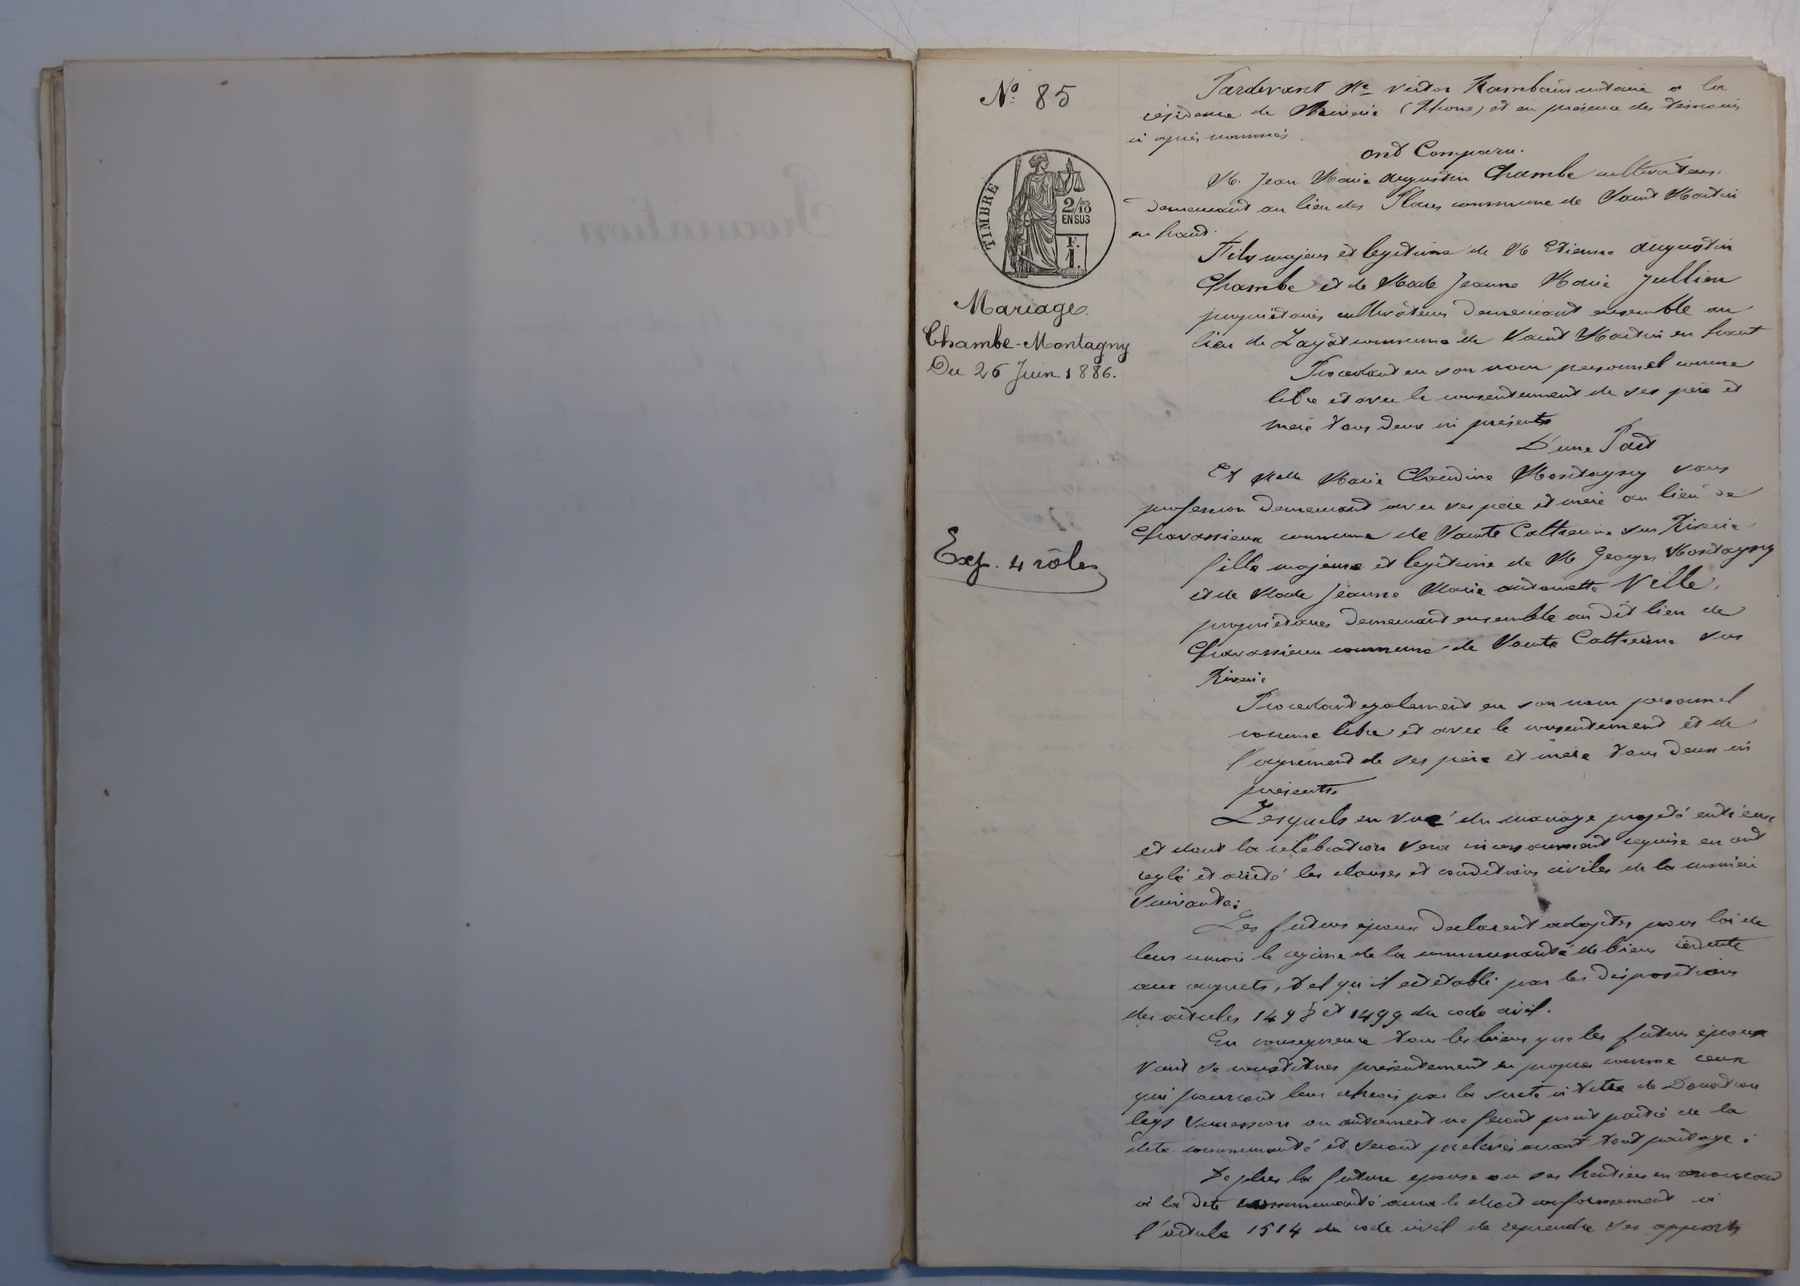 Nº 85
TIMBRE
2/10
EN SUS
F.
1.
Mariage
Chambe-Montagny
Du 26 Juin 1886.
Exp. 4 rôles
Pardevant Me Victor Rambaud notaire à la
résidence de Riverie (Rhone) et en présence des témoins
ci après nommés
ont Comparu.
M. Jean Marie Augustin Chambe cultivateur,
demeurant au lieu des Places commune de Saint Martin
en haut.
Fils majeur et légitime de M Etienne Augustin
Chambe et de Made Jeanne Marie Jullien
propriétaires cultivateurs demeurant ensemble au
lieu de Layat commune de Saint Martin en haut
Procédant en son nom personnel comme
libre et avec le consentement de ses père et
mère tous deux ici présents
D'une Part
Et Melle Marie Claudine Montagny sans
profession demeurant avec ses père et mère au lieu de
Chavassieux commune de Sainte Catherine sur Riverie
fille majeure et légitime de M Georges Montagny
et de Made Jeanne Marie Antoinette Ville,
propriétaires demeurant ensemble au dit lieu de
Chavassieux commune de Sainte Catherine sur
Riverie
Procédant également en son nom personnel
comme libre et avec le consentement et de
l'agrément de ses père et mère tous deux ici
présents.
Lesquels en vue du mariage projeté entre eux
et dont la célébration sera incessamment requise en ont
réglé et arrêté les clauses et conditions civiles de la manière
suivante:
Les futurs époux déclarent adopter pour loi de
leur union le régime de la communauté de biens réduite
aux acquets, tel qu'il est établi par les dispositions
des articles 1498 et 1499 du code civil.
En conséquence tous les biens que les futurs époux
vont se constituer présentement en propres comme ceux
qui pourront leur échoir par la suite à titre de Donation
legs succession ou autrement ne feront point partie de la
dite communauté et seront prélevés avant tout partage.
De plus la future épouse ou ses héritiers en renoncant
à la dite communauté aura le droit conformement à
l'article 1514 du code civil de reprendre ses apports